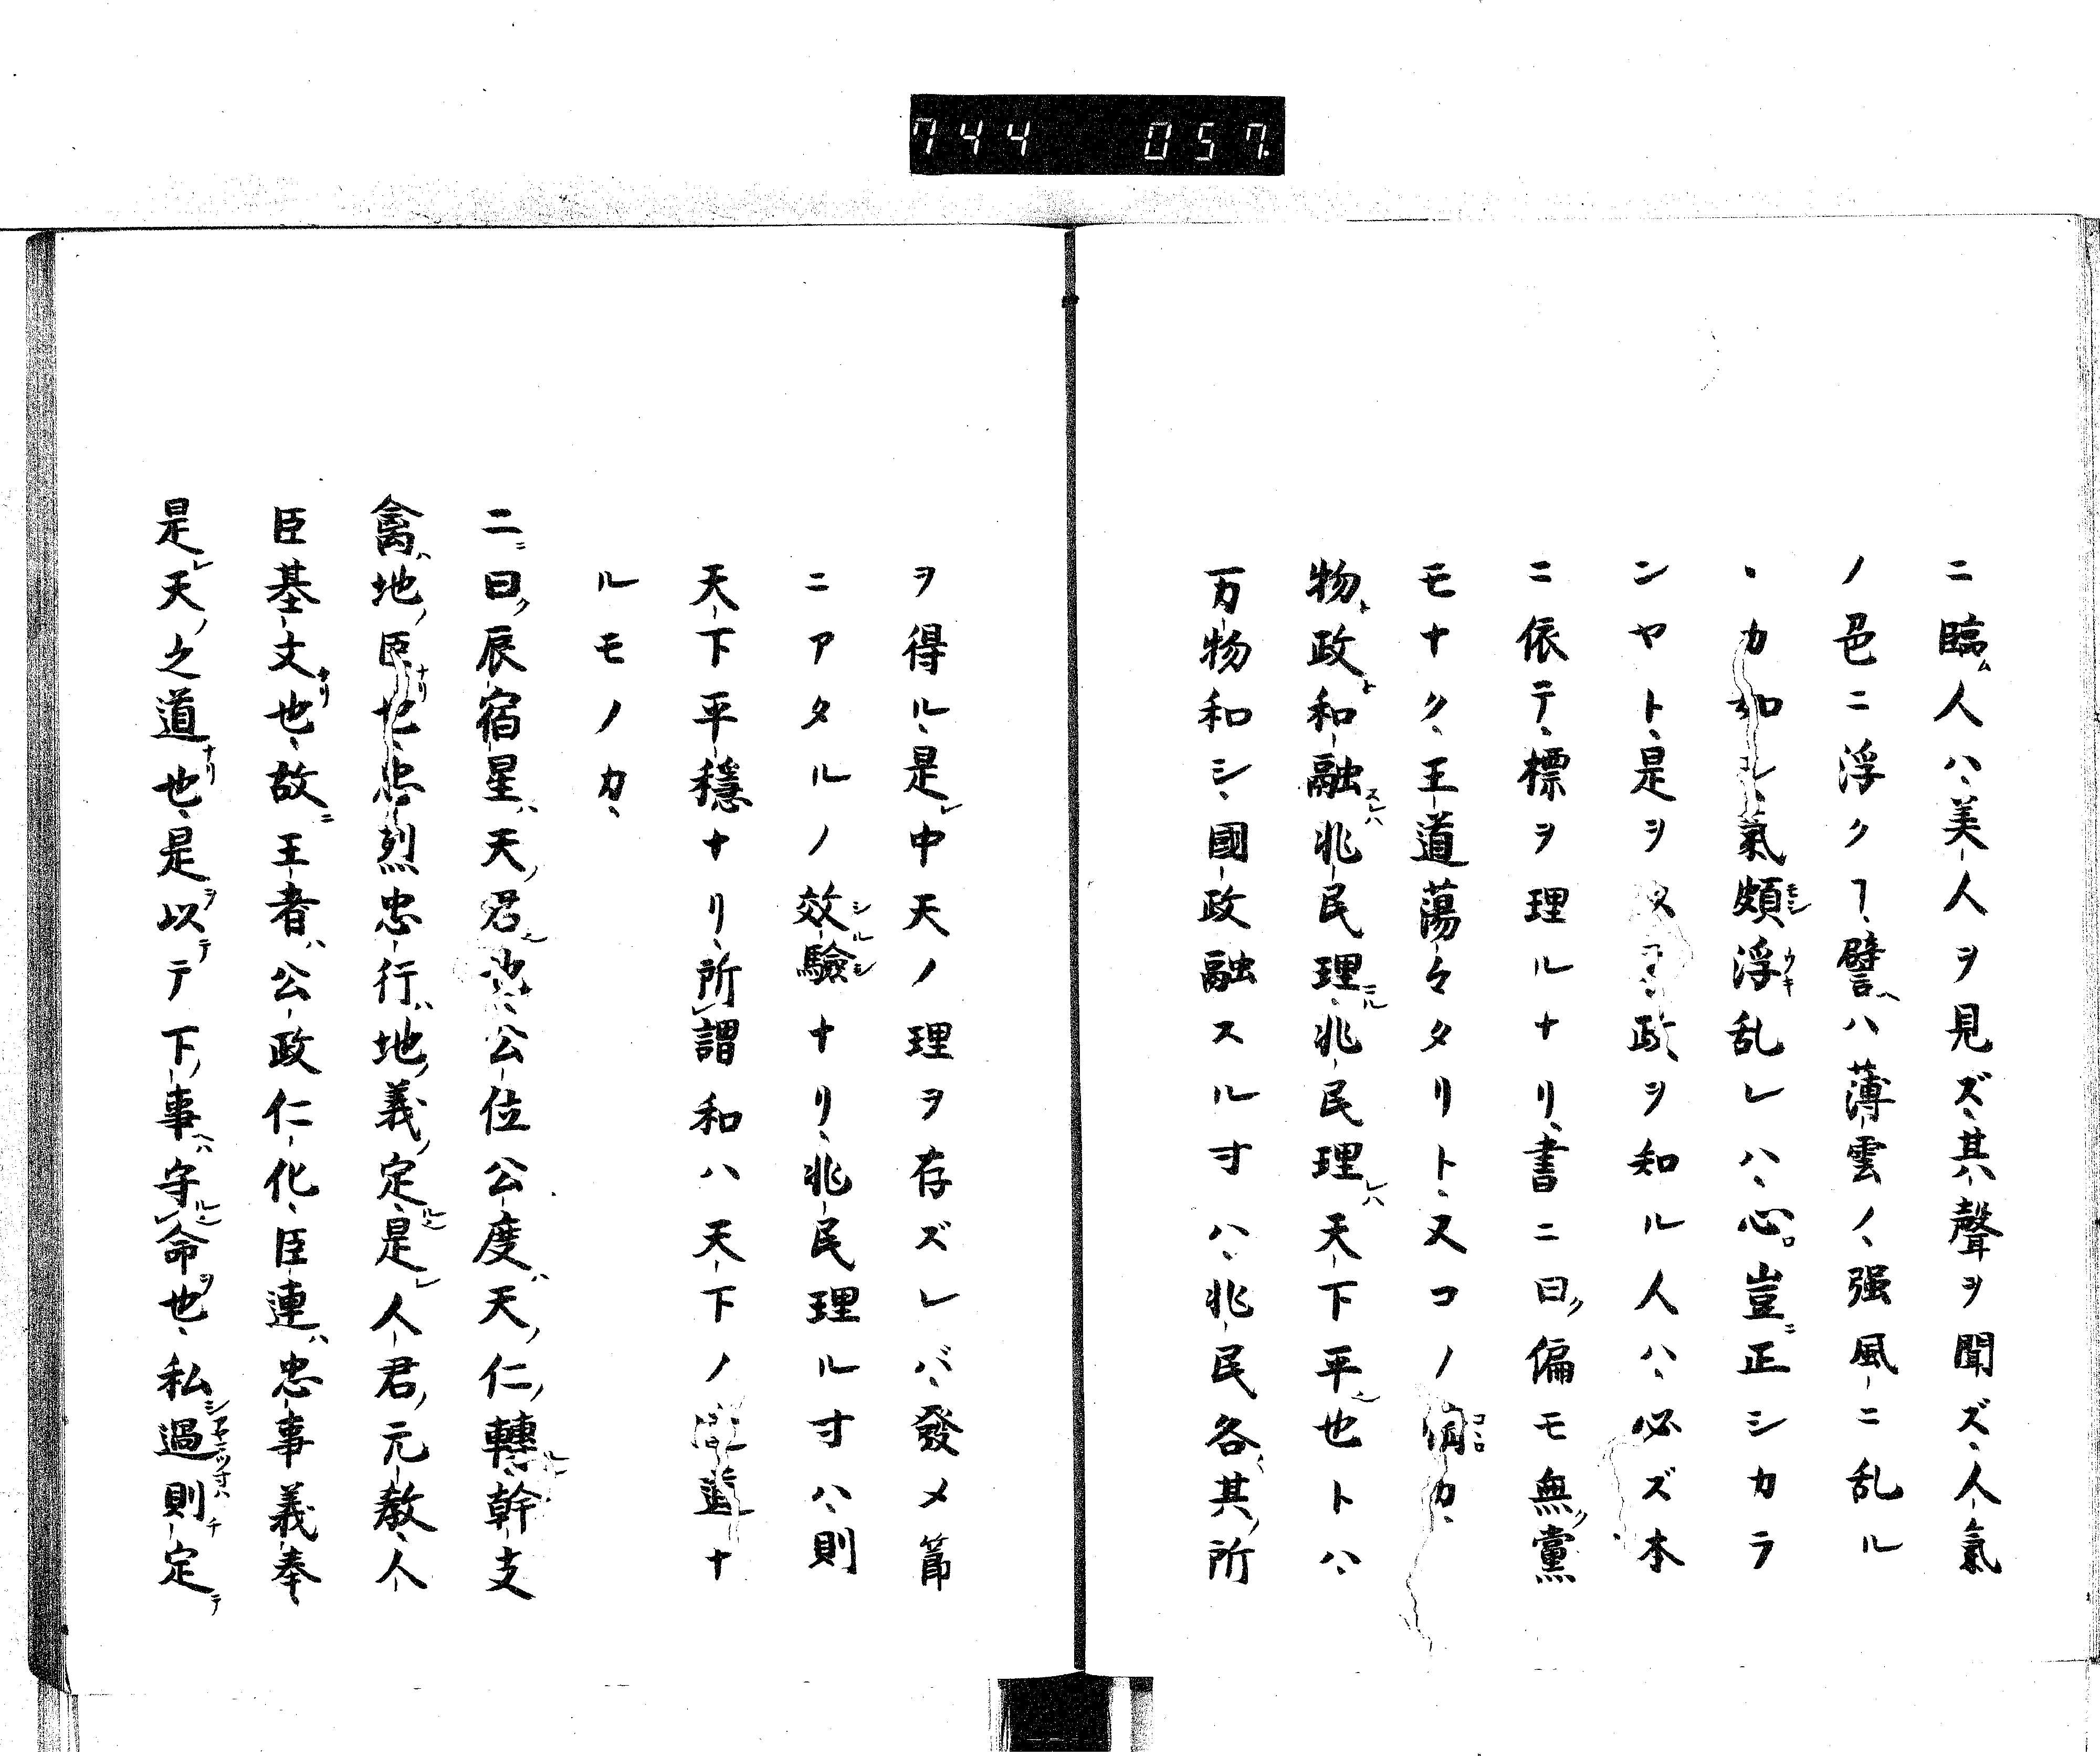 744 057
ニ臨ム人ハ、美人ヲ見ズ、其ハ聲ヲ聞ズ、人氣
ノ色ニ浮クヿ、譬ヘハ薄雲ノ、强風ニ乱ル
、カ如シ、氣頗浮乱レハ、心豈ニ正シカラ
ンヤト、是ヲ政ヲ知ル人ハ、必ズ本
ニ依テ、標ヲ理ルナリ、書ニ曰ク偏モ無ク黨
モナク、王道蕩々タリト、又コノカ、
物ト政ト和融スレハ兆民理ル、兆民理レハ天下平也トハ、
万物和シ、國政融スル寸ハ、兆民各其ノ所
ヲ得ル、是レ中天ノ理ヲ存ズレバ、發メ節
ニアタルノ效驗シルシナリ、兆民理ル寸ハ、則
天下平穩ナリ、所謂和ハ天下ノ達道ナ
ルモノカ、
二ニ曰ク辰宿星ハ天ノ君也、公位公度ハ天ノ仁ノ轉幹支
禽ハ地ノ臣也、忠烈忠行ハ地ノ義ノ定、是レ人君ノ元教、人
臣基丈也、故ニ王者ハ公政仁化、臣連ハ忠事義奉、
是レ天ノ之道也、是ヲ以テ下事守命也、私過則チ定テ